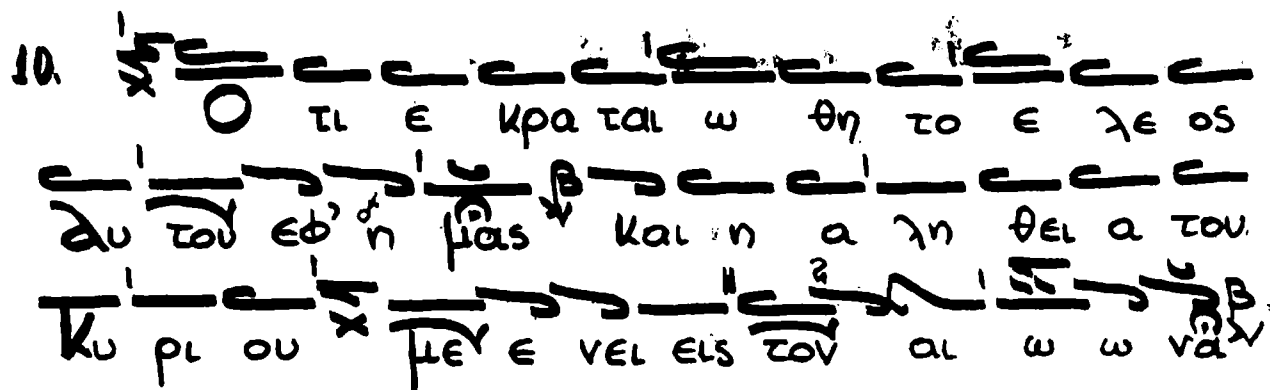 10. Ο τι ε κρα ται ω θη το ε λε ος
αυ του εφ' η μας και η α λη θει α του
Κυ ρι ου με ε νει εις τον αι ω ω να